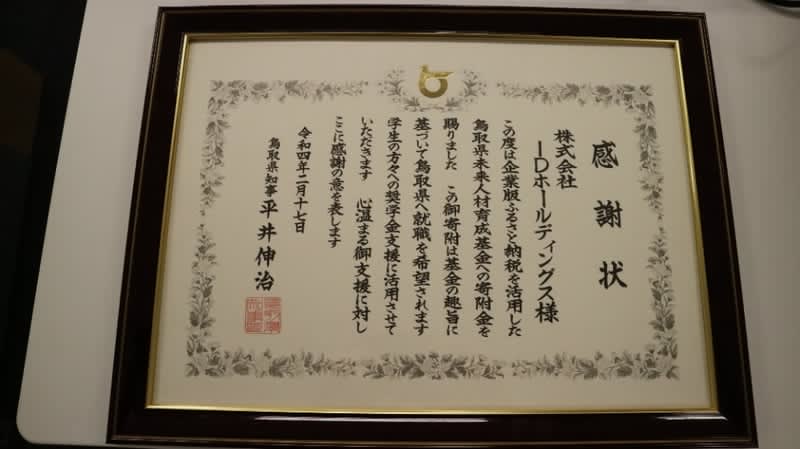 感謝状
株式会社
IDホールディングス様
この度は企業版ふるさと納税を活用した
鳥取県未来人材育成基金への寄附金を
賜りました　この御寄附は基金の趣旨に
基づいて鳥取県へ就職を希望されます
学生の方々への奨学金支援に活用させて
いただきます　心温まる御支援に対し
ここに感謝の意を表します
令和四年二月十七日
鳥取県知事 平井伸治